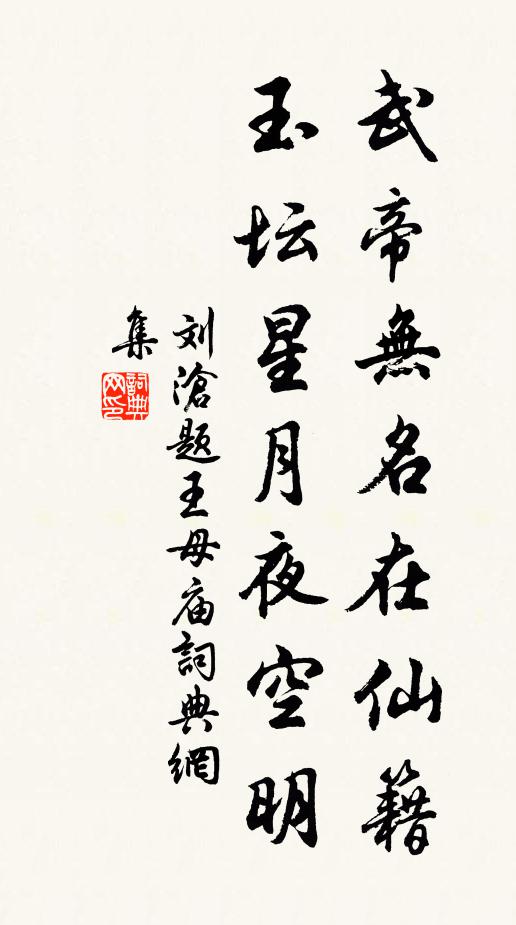 武帝無名在仙籍
玉坛星月夜空明
刘滄题王母庙詞典網
集
詞典
网印